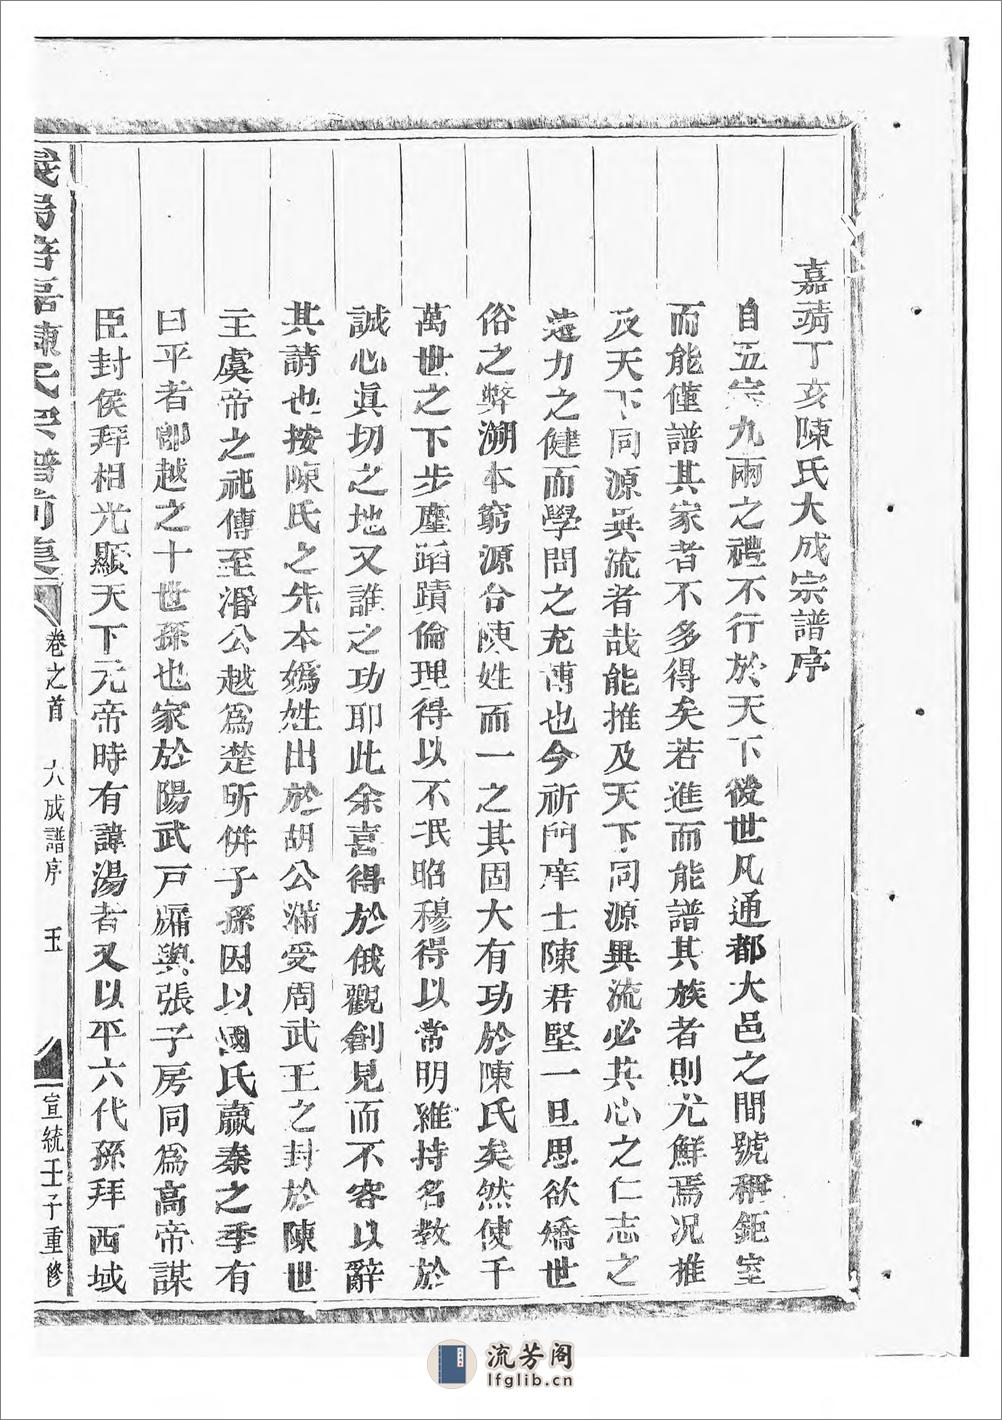 嘉靖丁亥陳氏大成宗譜序
自五宗九兩之禮不行於天下後世凡通都大邑之間號稱鉅室
而能僅譜其家者不多得矣若進而能譜其族者則尤鮮焉况推
及天下同源異流者哉能推及天下同源異流必共心之仁志之
遠力之健而學問之充博也今祈門庠士陳君堅一旦思欲矯世
俗之弊溯本窮源合陳姓而一之其固大有功於陳氏矣然使千
萬世之下步塵蹈蹟倫理得以不泯昭穆得以常明維持名教於
誠心眞切之地又誰之功耶此余喜得於俄觀創見而不容以辭
其請也按陳氏之先本嬀姓出於胡公滿受周武王之封於陳世
主虞帝之祀傳至湣公越爲楚所併子孫因以國氏嬴秦之季有
曰平者卽越之十世孫也家於陽武戸牖與張子房同爲高帝謀
臣封侯拜相光顯天下元帝時有諱湯者又以平六代孫拜西域
陳氏宗譜前集
卷之首
大成譜序
五
宣統壬子重修
流芳阁
lfglib.cn